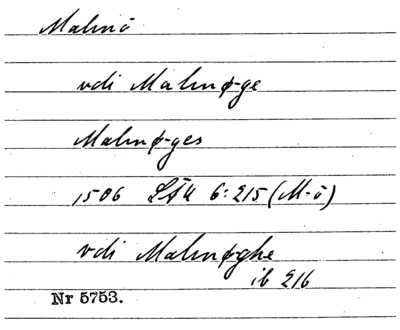 Malmö
vdi Malmøge
Malmøges
1506 LÅU 6:215 (M-ö)
vdi Malmøghe
ib 216
Nr 5753.